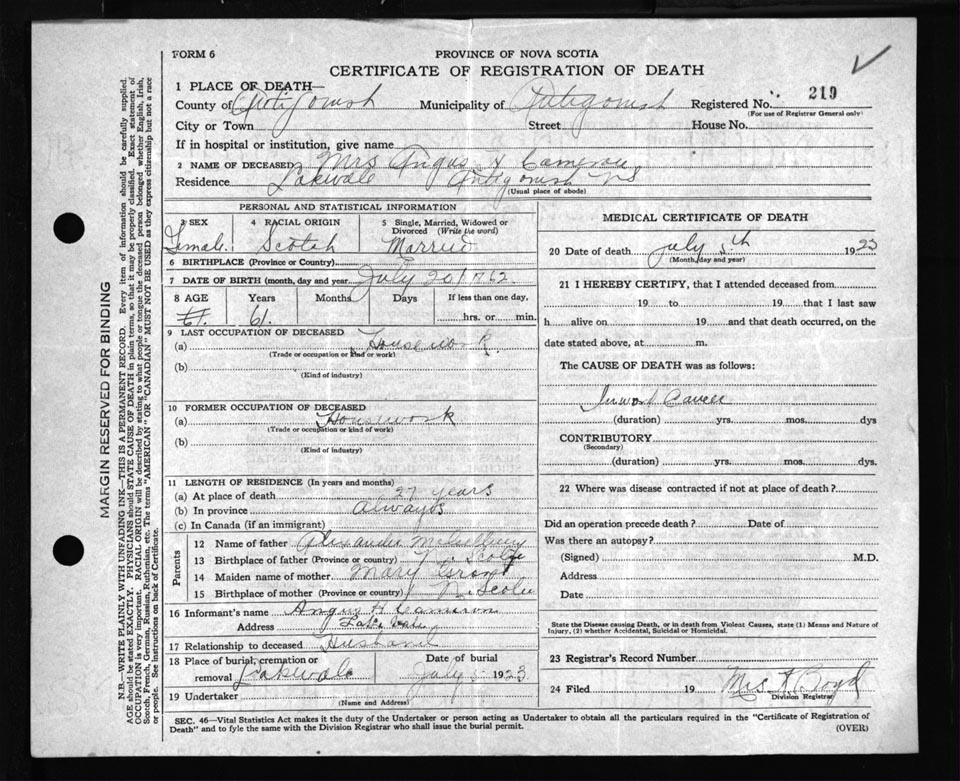 FORM 6
PROVINCE OF NOVA SCOTIA
CERTIFICATE OF REGISTRATION OF DEATH
1 PLACE OF DEATH—
County of Antigonish Municipality of Antigonish Registered No. 219
(For use of Registrar General only)
City or Town Street House No.
If in hospital or institution, give name
2 NAME OF DECEASED Mrs Angus H Cameron
Residence Lakvale Antigonish NS
(Usual place of abode)
PERSONAL AND STATISTICAL INFORMATION
3 SEX 4 RACIAL ORIGIN 5 Single, Married, Widowed or Divorced (Write the word)
Female. Scotch Married
6 BIRTHPLACE (Province or Country)
7 DATE OF BIRTH (month, day and year) July 20/1762
8 AGE Years Months Days If less than one day,
61. 61. hrs. or min.
9 LAST OCCUPATION OF DECEASED
(a) Housework.
(Trade or occupation or kind or work)
(b)
(Kind of industry)
10 FORMER OCCUPATION OF DECEASED
(a) Housework
(Trade or occupation or kind of work)
(b)
(Kind of industry)
11 LENGTH OF RESIDENCE (In years and months)
(a) At place of death 27 years
(b) In province always
(c) In Canada (if an immigrant)
Parents
12 Name of father Alexander
13 Birthplace of father (Province or country) N. Scotia
14 Maiden name of mother Mary Grant
15 Birthplace of mother (Province or country) N. Scotia
16 Informant's name Angus H Cameron
Address Lake Vale
17 Relationship to deceased Husband
18 Place of burial, cremation or removal Lakevale Date of burial July 1923
19 Undertaker
(Name and Address)
MEDICAL CERTIFICATE OF DEATH
20 Date of death July 5th 1923
(Month, day and year)
21 I HEREBY CERTIFY, that I attended deceased from
19 to 19 that I last saw
h alive on 19 and that death occurred, on the
date stated above, at m.
The CAUSE OF DEATH was as follows:
Inward Cancer
(duration) yrs. mos. dys
CONTRIBUTORY
(Secondary)
(duration) yrs. mos. dys.
22 Where was disease contracted if not at place of death?
Did an operation precede death? Date of
Was there an autopsy?
(Signed) M.D.
Address
Date
State the Disease causing Death, or in death from Violent Causes, state (1) Means and Nature of
Injury, (2) whether Accidental, Suicidal or Homicidal.
23 Registrar's Record Number
24 Filed 19 Mrs A. Boyd
Division Registrar
SEC. 46—Vital Statistics Act makes it the duty of the Undertaker or person acting as Undertaker to obtain all the particulars required in the "Certificate of Registration of
Death" and to fyle the same with the Division Registrar who shall issue the burial permit. (OVER)
MARGIN RESERVED FOR BINDING
N.B.—WRITE PLAINLY WITH UNFADING INK—THIS IS A PERMANENT RECORD. Every item of information should be carefully supplied.
AGE should be stated EXACTLY. PHYSICIANS should STATE CAUSE OF DEATH in plain terms, so that it may be properly classified. Exact statement of
OCCUPATION is very important. RACIAL ORIGIN will be described by stating to what people or tongue the deceased person belonged whether English, Irish,
Scotch, French, German, Russian, Ruthenian, etc. The terms "AMERICAN" OR "CANADIAN" MUST NOT BE USED as they express citizenship but not a race
or people. See instructions on back of Certificate.